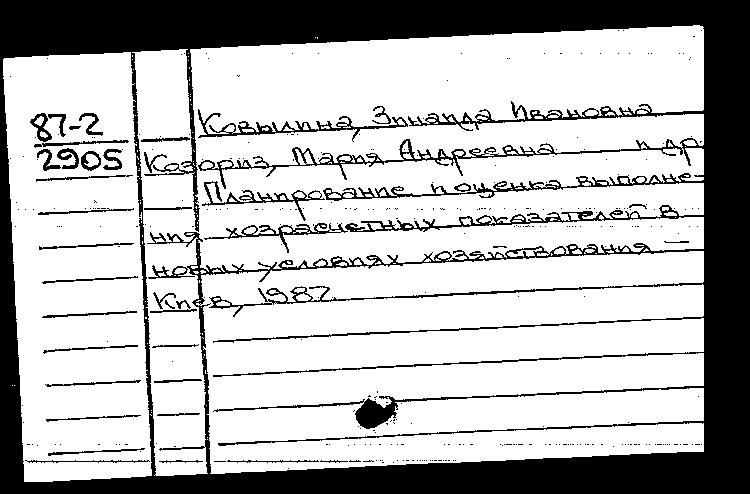 87-2 Ковылина, Зинаида Ивановна
2905 Козориз, Мария Андреевна и др.
Планирование и оценка выполне-
ния хозрасчетных показателей в
новых условиях хозяйствования —
Киев, 1987.